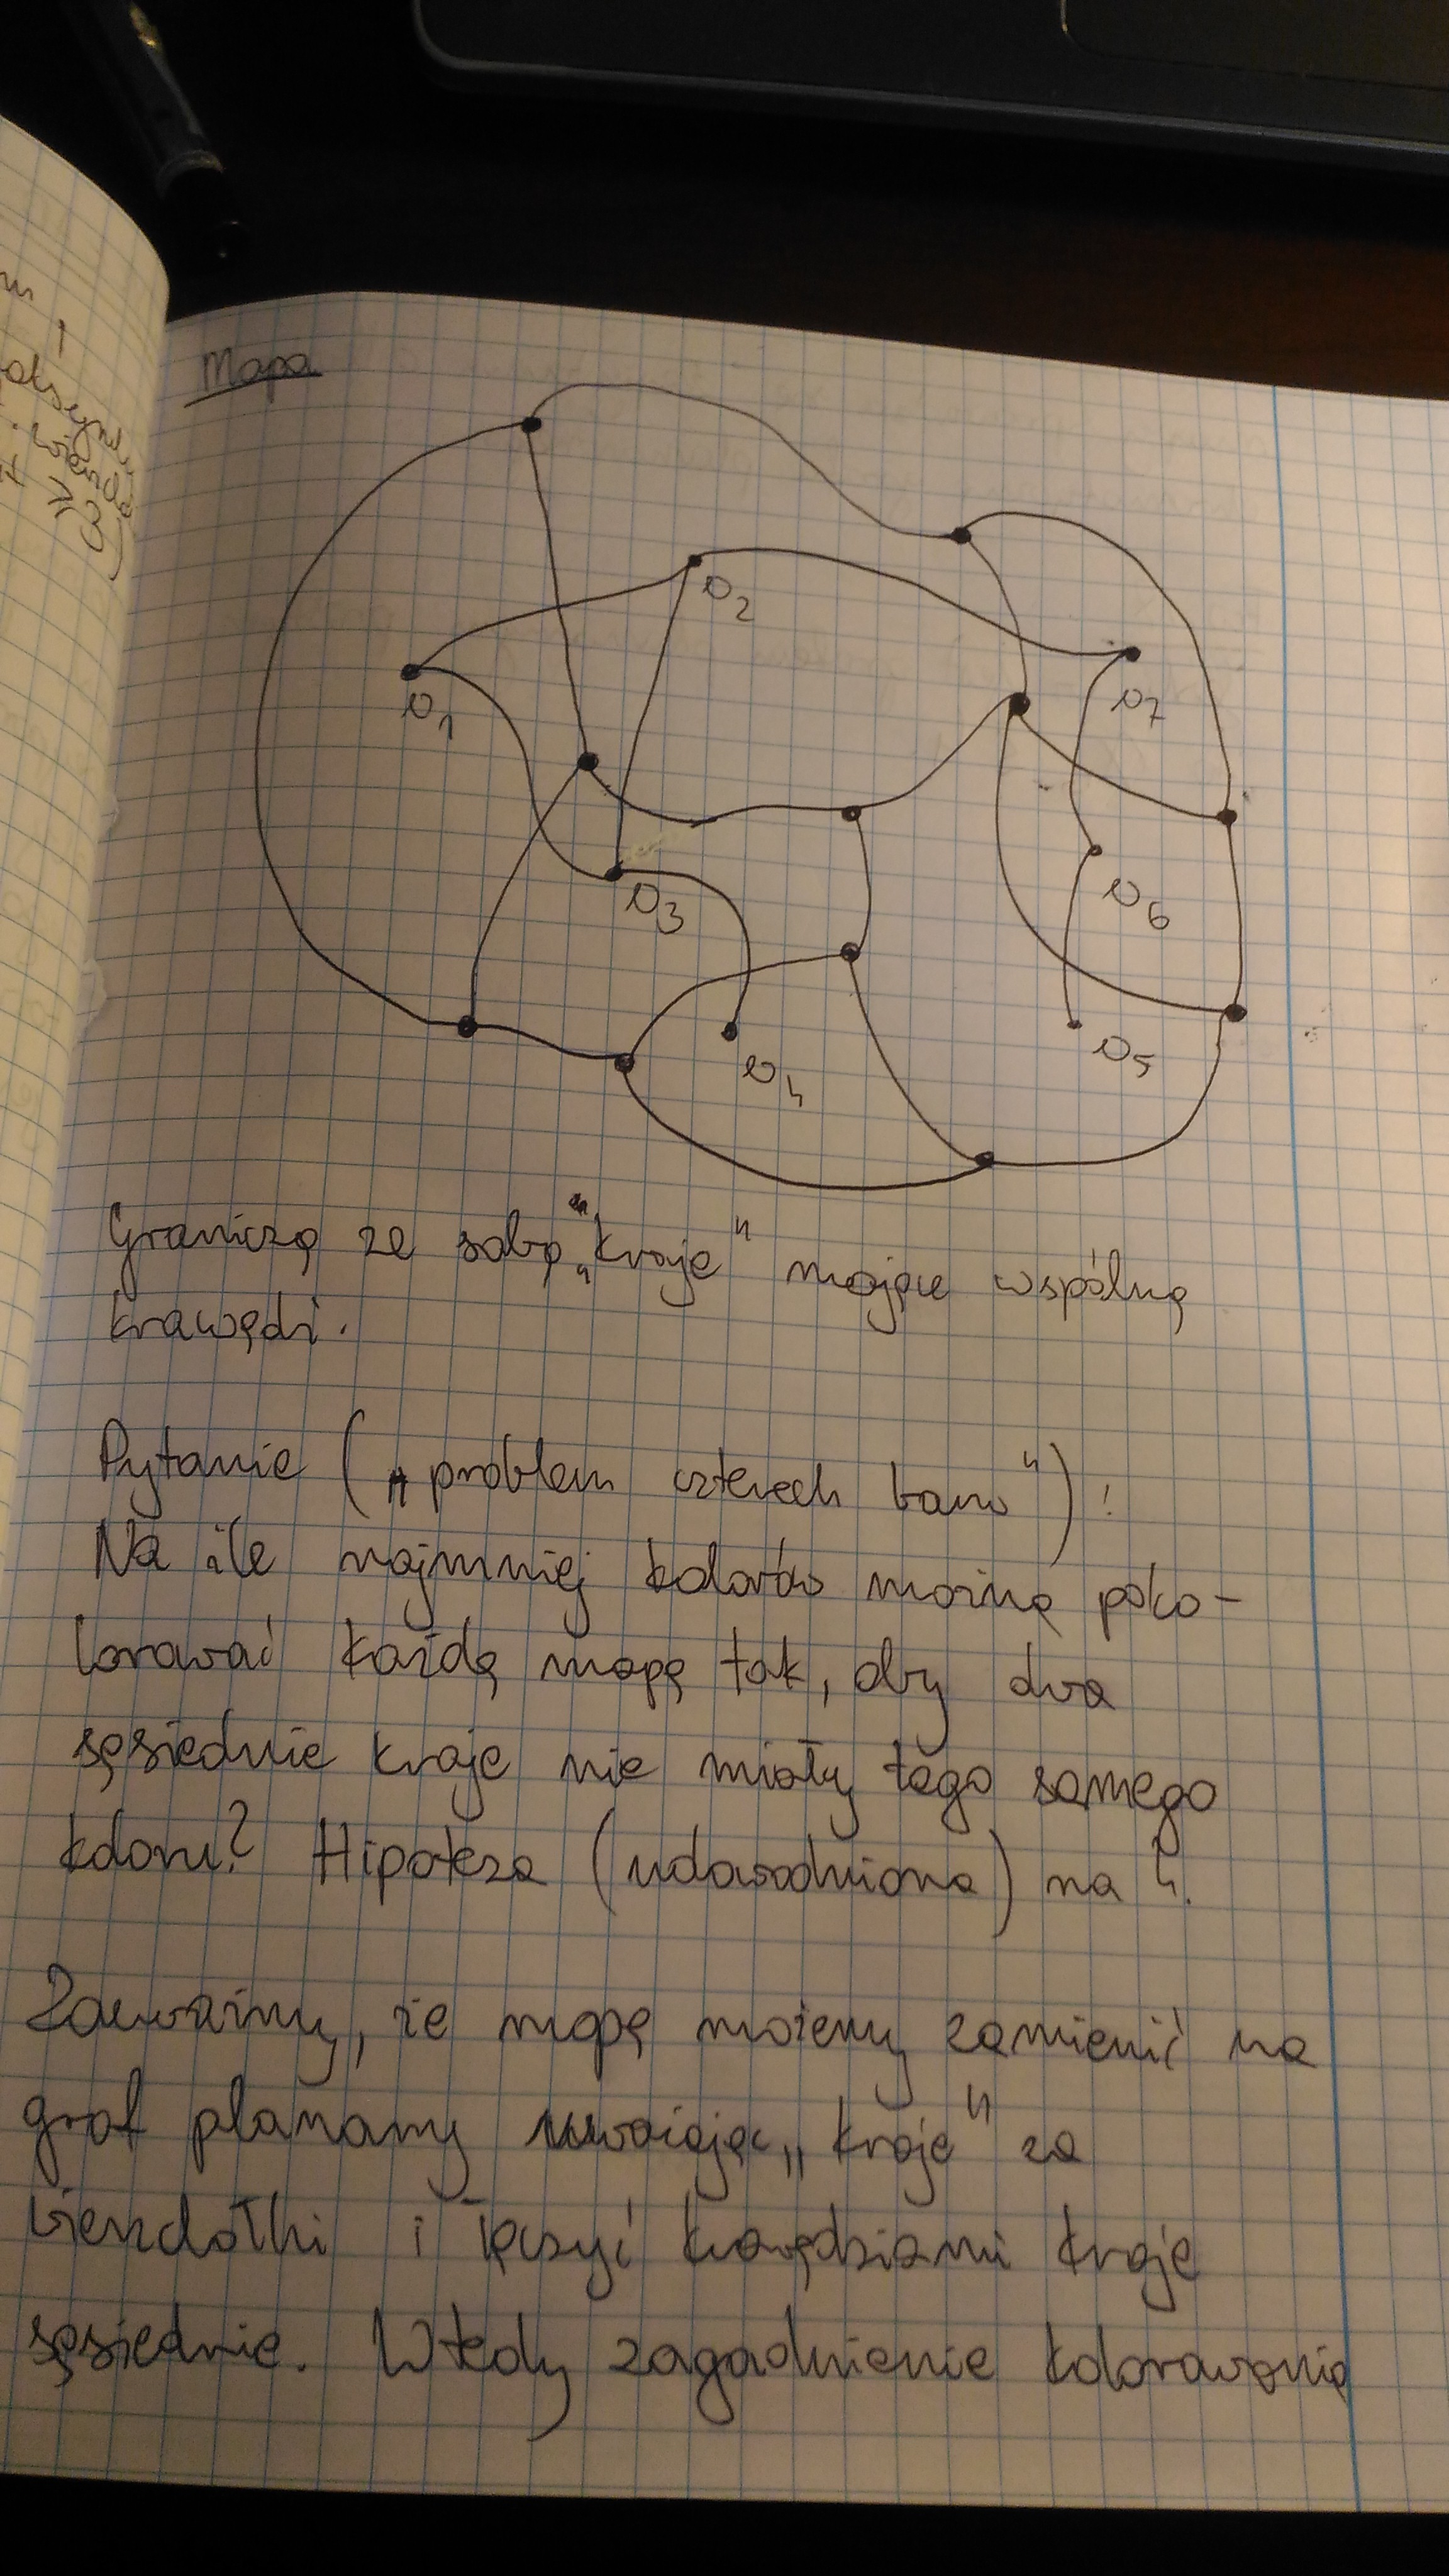 Mapa
v2
v1
v7
v3
v6
v4
v5
Graniczą ze sobą „kraje” mające wspólną
krawędź.
Pytanie („problem czterech barw”):
Na ile najmniej kolorów można poko-
lorować każdą mapę tak, aby dwa
sąsiednie kraje nie miały tego samego
koloru? Hipoteza (udowodniona) na 4.
Zauważmy, że mapę możemy zamienić na
graf planarny uważając „kraje” za
wierzchołki i łączyć krawędziami kraje
sąsiednie. Wtedy zagadnienie kolorowania